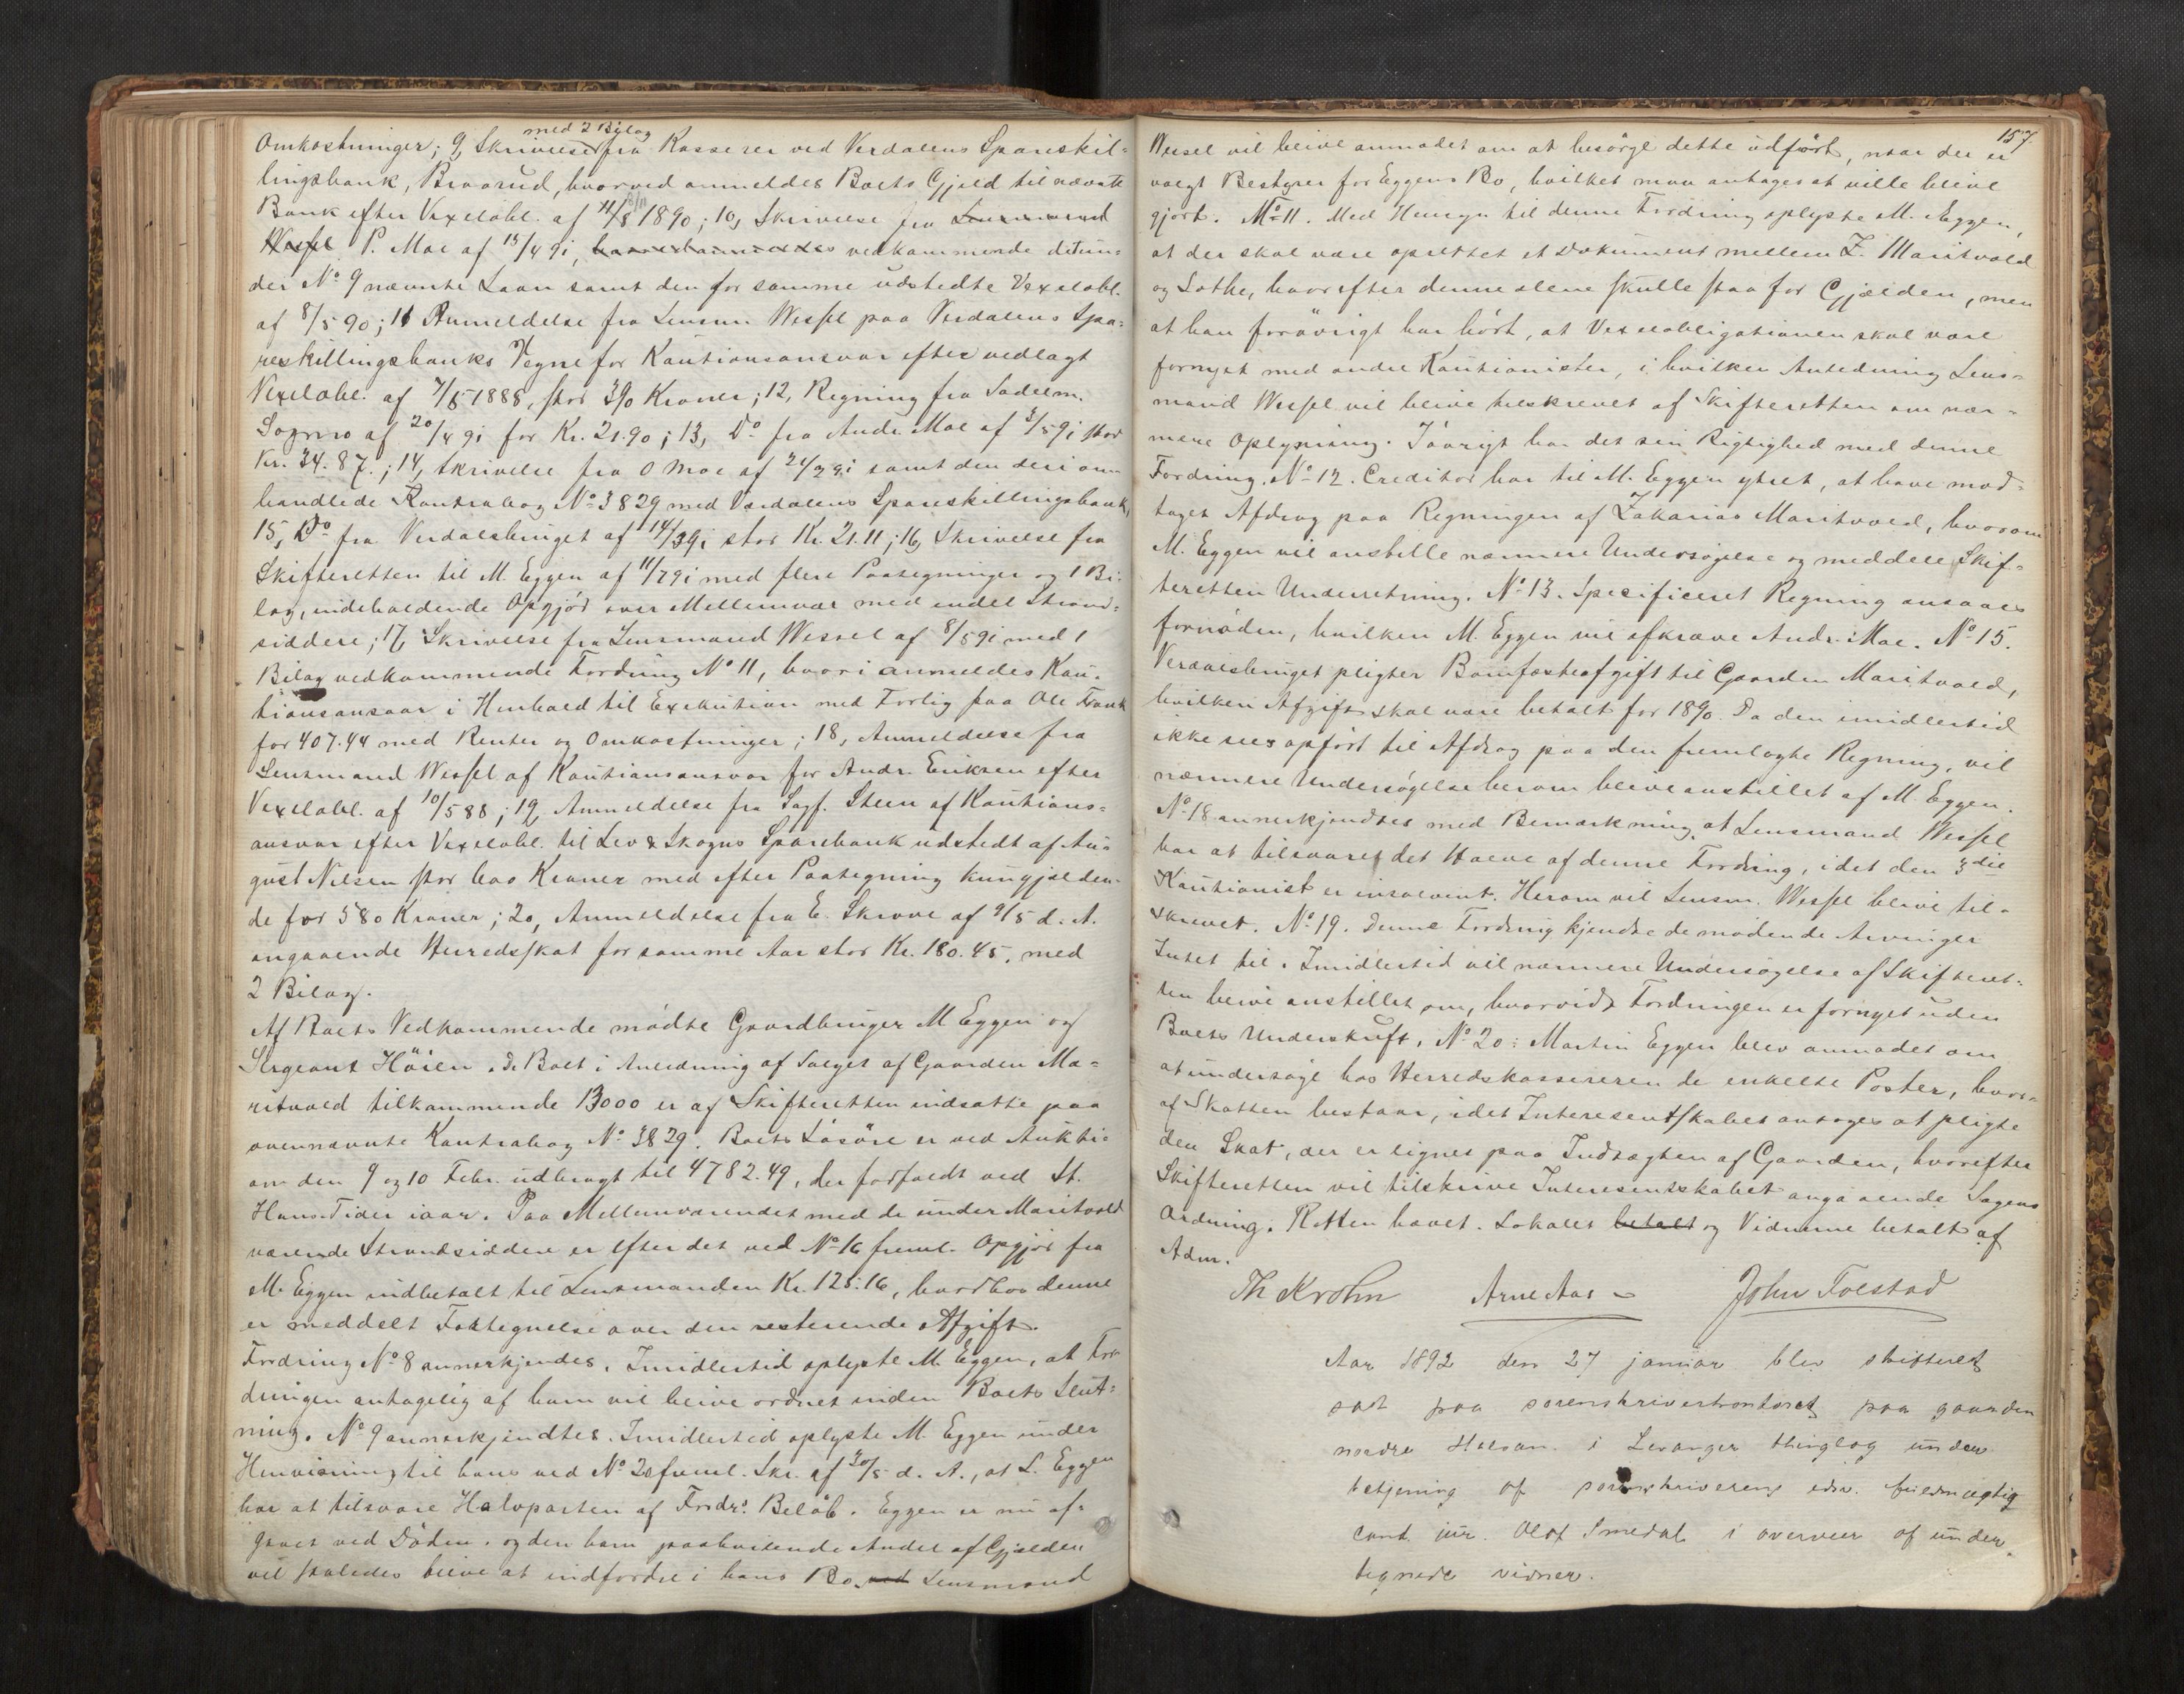 Omkostninger; 9, Skrivelse med 2 Bilag fra Kasserer ved Verdalens Spareskil-
lingsbank, Braarud, hvorved anmeldes Boets Gjæld til nævnte
Bank efter Vexelobl. af 11/8 1890; 10, Skrivelse fra Lensmand
Wessel P. Moe af 15/4 91, vedkommende det un-
der No 9 nævnte Laan samt den for samme udstedte Vexelobl.
af 8/5 90; 11 Anmeldelse fra Lensm. Wessel paa Verdalens Spa-
reskillingsbanks Vegne for Kautionsansvar efter vedlagt
Vexelobl. af 7/5 1888, stor 390 Kroner; 12, Regning fra Sadelm.
af 20/4 91 for Kr. 21.90; 13, Do fra Andr. Moe af 3/5 91 stor
Kr. 34.87.; 14, Skrivelse fra O Moe af 24/2 91 samt den deri om-
handlede Kontrabog No 3829 med Verdalens Spareskillingsbank,
15, Do fra Verdalsbruget af 14/3 91 stor Kr. 21.11; 16, Skrivelse fra
Skifteretten til M. Eggen af 11/7 91 med flere Paategninger og 1 Bi-
lag, indeholdende Opgjör over Mellemvær med endel Strand-
siddere; 17, Skrivelse fra Lensmand Wessel af 8/5 91 med 1
Bilag vedkommende Fordring No 11, hvori anmeldes Kau-
tionsansvar i Henhold til Exekution med Forlig paa Ole
for 407.44 med Renter og Omkostninger; 18, Anmeldelse fra
Lensmand Wessel af Kautionsansvar for Andr. Eriksen efter
Vexelobl. af 10/5 88; 19, Anmeldelse fra Sagf. Steen af Kautions-
ansvar efter Vexelobl. til Lev & Skogns Sparebank udstedt af Au-
gust Nilsen stor 600 Kroner med efter Paategning kun gjælden-
de for 580 Kroner; 20, Anmeldelse fra E. Skrove af 9/5 d. A.
angaaende Herredsskat for samme Aar stor Kr. 180.45. med
2 Bilag.
Af Boets Vedkommende mödte Gaardbruger M Eggen og
Sergeant Höien. De Boet i Anledning af Salget af Gaarden Ma-
ritvold tilkommende 13000 er af Skifteretten indsatte paa
ovennævnte Kontrabog No 3829. Boets Lösöre er ved Aukti-
on den 9 og 10 Febr. udbragt til 4782.49, der forfaldt ved St.
Hans Tider iaar. Paa Mellemværendet med de under Maritvold
værende Strandsiddere er efter det ved No 16 freml. Opgjör fra
M. Eggen indbetalt til Lensmanden Kr. 125.16, hvorhos denne
er meddelt Fortegnelse over den resterende Afgift.
Fordring No 8 annerkjendes. Imidlertid oplyste M. Eggen, at For-
dringen antagelig af ham vil blive ordnet inden Boets Slut-
ning. No 9 annerkjendtes. Imidlertid oplyste M. Eggen under
Henvisning til hans ved No 20 freml. Skr. af 30/5 d. A., at L. Eggen
har at tilsvare Halvparten af Fordr. Belöb. Eggen er nu af-
gaaet ved Döden. og den ham paahvilende Andel af Gjælden
vil saaledes blive at indfordre i hans Bo. ved Lensmand
157.
Wessel vil blive anmodet om at besörge dette udfört, naar der er
valgt Bestyrer for Eggens Bo, hvilket man antager at ville blive
gjort. No 11. Med Hensyn til denne Fordring oplyste M. Eggen,
at der skal være oprettet et Dokument mellem Z. Maritvold
og Lothe, hvorefter denne alene skulle staa for Gjælden, men
at han forövrigt har hört, at Vexelobligationen skal være
fornyet med andre Kautionister, i hvilken Anledning Lens-
mand Wessel vil blive tilskrevet af Skifteretten om nær-
mere Oplysning. Iövrigt har det sin Rigtighed med denne
Fordring. No 12. Creditor har til M. Eggen ytret, at have mod-
taget Afdrag paa Regningen af Zakarias Maritvold, hvorom
M. Eggen vil anstille nærmere Undersögelse og meddele Skif-
teretten Underretning. No 13. Specificeret Regning ansaaes
fornöden, hvilken M. Eggen vil afkræve Andr. Moe. No 15.
Verdalsbruget pligter Bomfæsteafgift til Gaarden Maritvold,
hvilken Afgift skal være betalt for 1890. Da den imidlertid
ikke sees opfört til Afdrag paa den fremlagte Regning, vil
nærmere Undersögelse herom blive anstillet af M. Eggen.
No 18 annerkjendtes med Bemærkning, at Lensmand Wessel
har at tilsvaret det Halve af denne Fordring, idet den 3die
Kautionist er insolvent. Herom vil Lensm. Wessel blive til-
skrevet. No 19. Denne Fordring kjendte de mödende Arvinger
Intet til. Imidlertid vil nærmere Undersögelse af Skifteret-
ten blive anstillet om, hvorvidt Fordringen er fornyet uden
Boets Underskrift. No 20: Martin Eggen blev anmodet om
at undersöge hos Herredskassereren de enkelte Poster, hvor-
af Skatten bestaar, idet Interesentskabet antages at pligte
den Skat, der er lignet paa Indtægten af Gaarden, hvorefter
Skifteretten vil tilskrive Interesentskabet angaaende Sagens
Ordning. Retten hævet. Lokalet betalt og Vidnerne betalt af
Adm.
Th Krohn Arne Aas John Tolstad
Aar 1892 den 27 januar blev skifteret
sat paa sorenskriverkontoret paa gaarden
nordre Halsan i Levanger thinglag under
betjening af sorenskriverens edsv. fuldmægtig
cand. jur. Olof Smedal i overvær af under-
tegnede vidner.